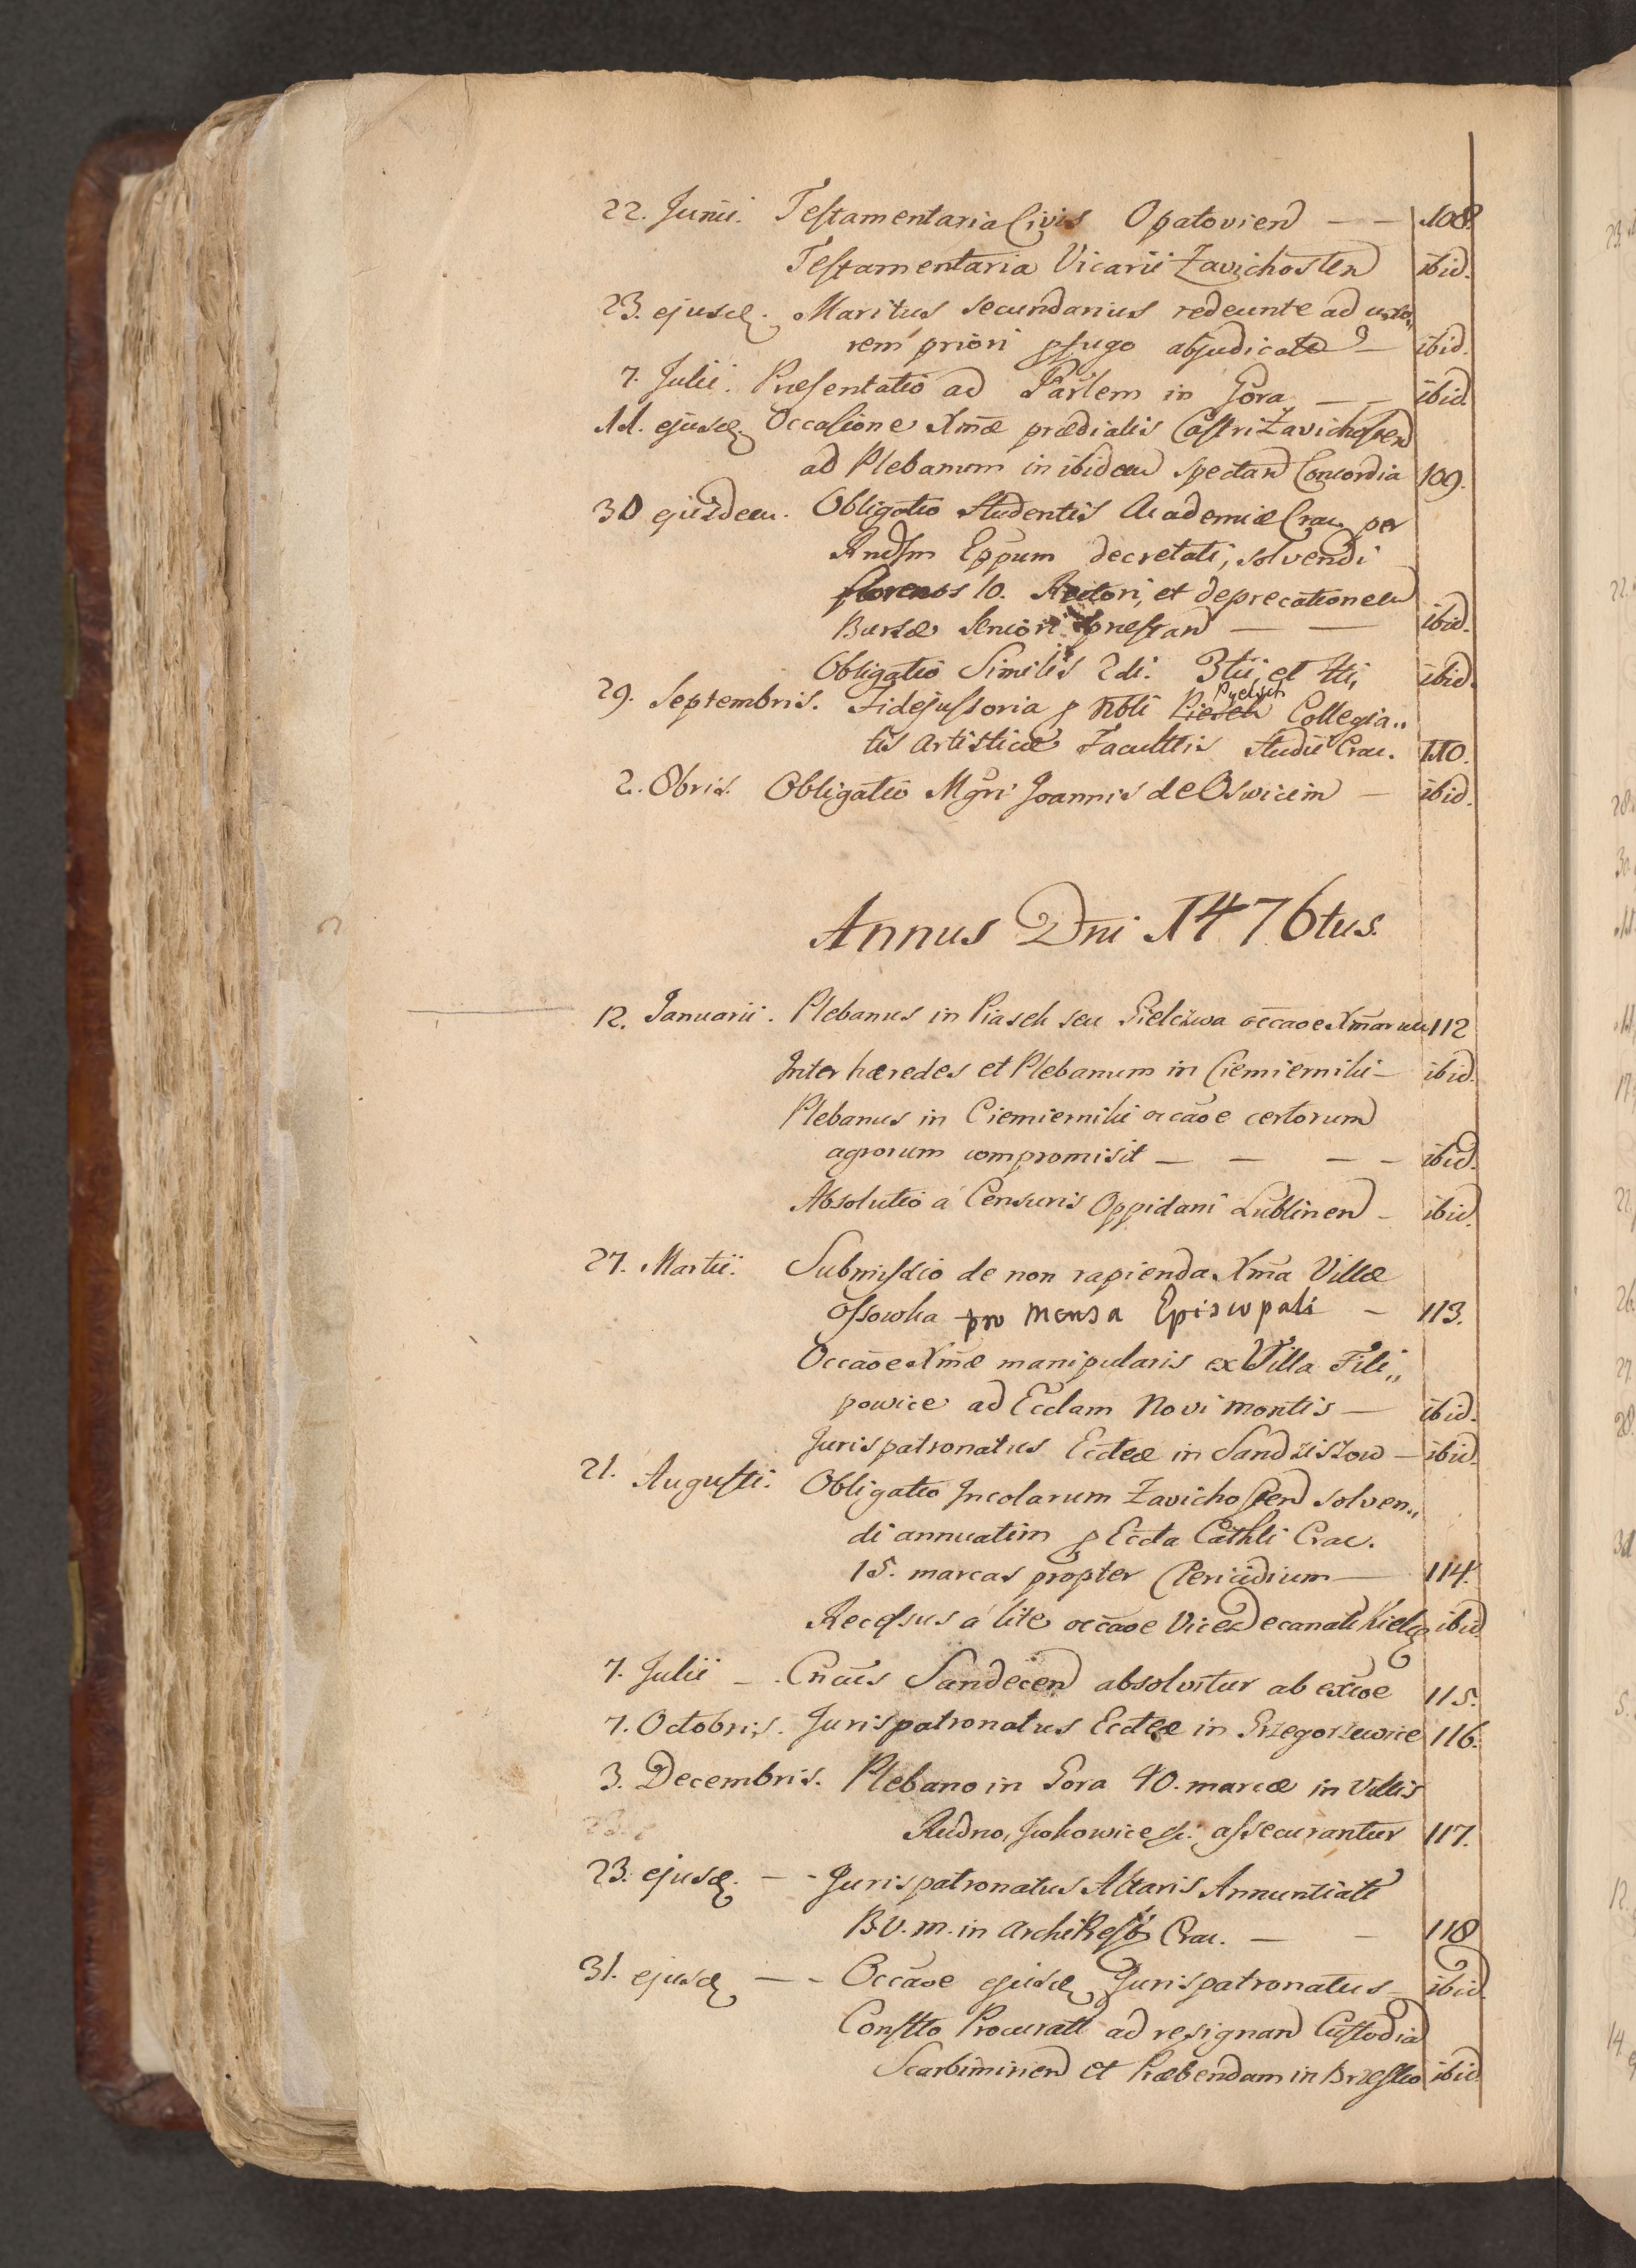 22. Junii. Testamentaria Civis Opatovien — — 108.
Testamentaria Vicarii Zavichosten ibid.
23. ejusd. Maritus secundarius redeunte ad uxo„
rem priori profugo abjudicatr — ibid.
7. Julii. Præsentatio ad Parlem in Gora — — ibid.
11. ejusd. Occasione Xmæ prædialis Castri Zavichosten
ad Plebanum in ibidem spectan Concordia 109.
30 ejusdem. Obligatio Studentis Academiæ Crac. per
Rndsm Eppum decretati, solvendi
florenos 10. Rectori, et deprecationem
Bursæ Seniori præstan — — ibid.
Obligatio Similis 2di. 3tii, et 4ti, ibid.
29. Septembris. Fidejussoria p Nbli Piesch Pyelsch Collegia„
tis Artisticæ Facultis Studii Crac. 110.
2. 8bris. Obligatio Mgri Joannis de Oswicim — ibid.
Annus Dni 1476tus.
12. Januarii. Plebanus in Piasek seu Pielczwa occaoe Xmarum 112
Inter hæredes et Plebanum in Ciemierniki — ibid.
Plebanus in Ciemierniki occaoe certorum
agrorum compromisit — — — — ibid.
Absolutio a Censuris Oppidani Lublinen — ibid.
27. Martii. Submissio de non rapienda Xma Villæ
Ossowka pro Mensa Episcopali — 113.
Occaoe Xmæ manipularis ex Villa Fili„
powice ad Ecclam Novi Montis — ibid.
Jurispatronatus Eccleæ in Sandziszow — ibid.
21. Augusti. Obligatio Incolarum Zavichosten solven„
di annuatim p Eccla Cathli Crac.
15. marcas propter Clericidium — 114.
Recessus a lite occaoe Vicedecanati Kielc ibid.
7. Julii — . Cncus Sandecen absolvitur ab excoe 115.
7. Octobris. Jurispatronatus Eccleæ in Grzegorzewice 116.
3. Decembris. Plebano in Gora 40. marcæ in Villis
Rudno, Jwkowice &c. assecurantur 117.
23. ejusd. — - Jurispatronatus Altaris Annuntiatt
B. V. M. in Archi Crac. — — 118
31. ejusd — - Occaoe ejusd Jurispatronatus — ibid.
Constto Procuratt ad resignan Custodia
Scarbimirien et Præbendam in Brzesko ibid.